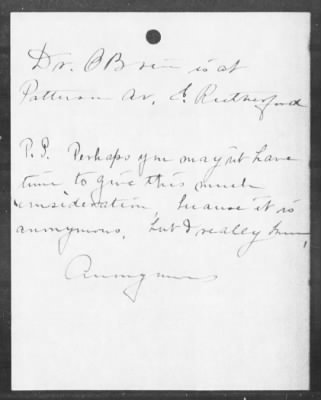 Dr. O'Brien is at
Patterson Av. E. Rutherford
P.S. Perhaps you may'nt have
time to give this much
consideration because it is
anonymous, but I really know,
Anonymous